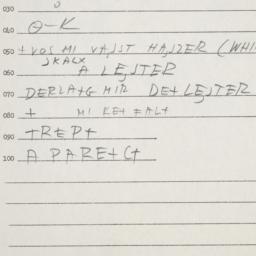 030
040 O-K
050 + VOS MI VAJST HAJZER (WHI
JKALX
060 A LEJTER
070 DERLA+G MIR DE+ LEJTER
080 + MI KE+ =AL+
090 +REP+
100 A PARE+C+